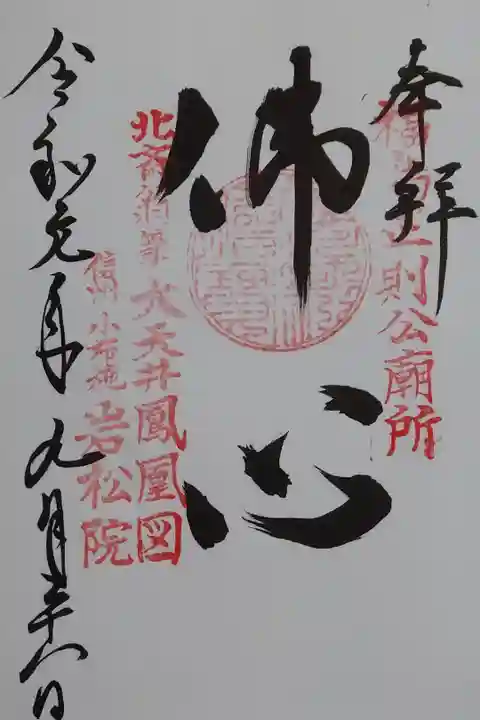 奉拝
福島正則公廟所
佛心
北斎肉筆大天井鳳凰図
信州小布施岩松院
令和元年九月二十八日